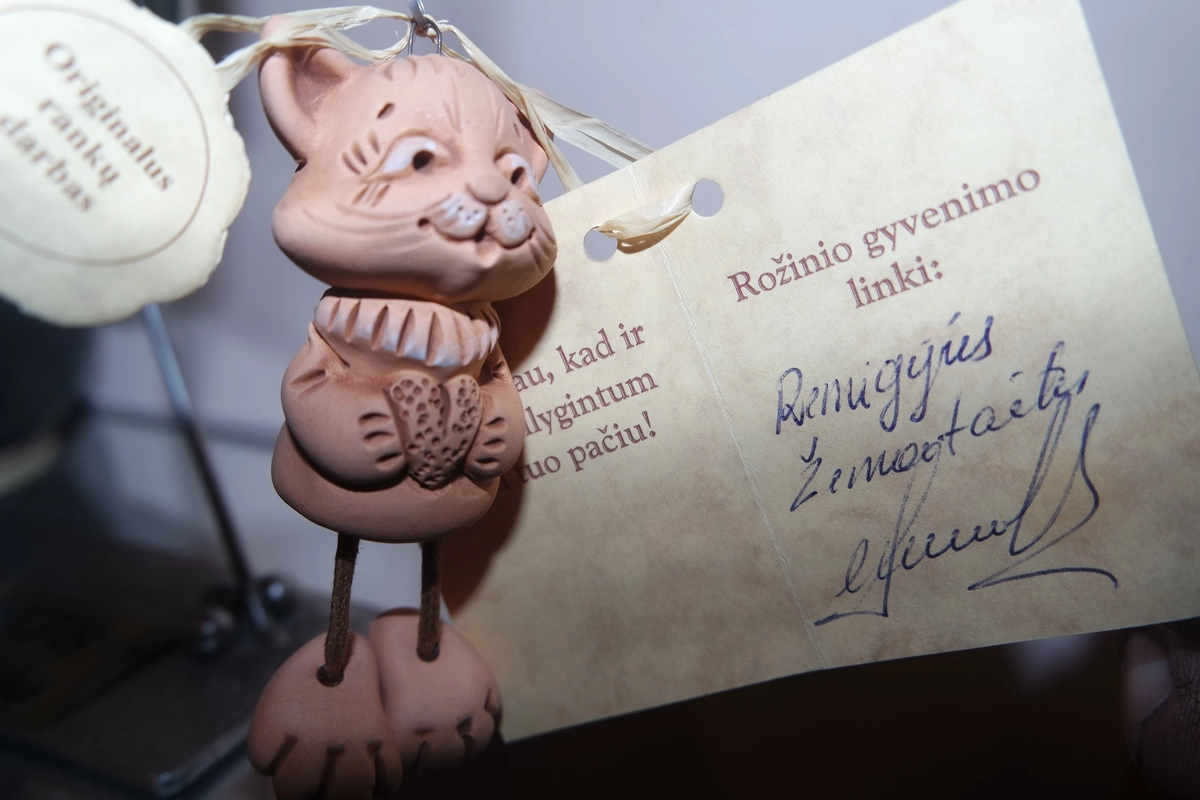 Originalus
rankų
darbas
au, kad ir
lygintum
tuo pačiu!
Rožinio gyvenimo
linki:
Remigijus
Žemaitaitis